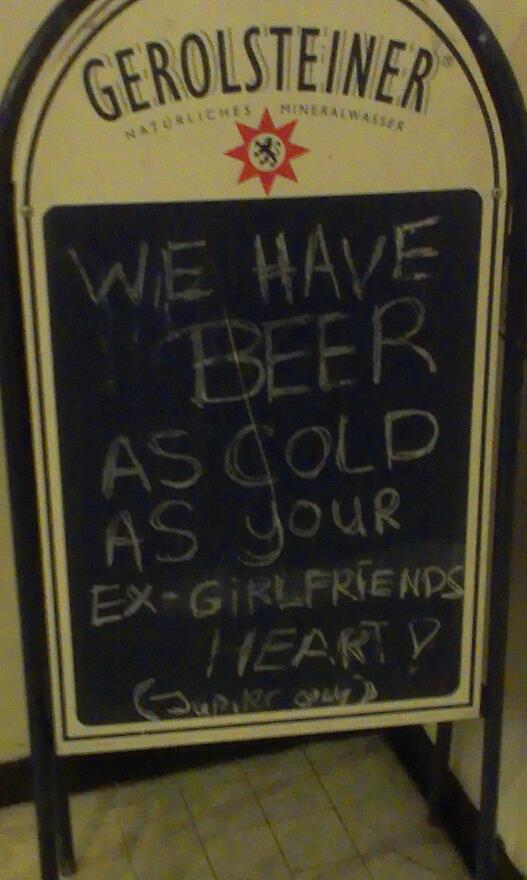 GEROLSTEINER®
NATÜRLICHES MINERALWASSER
WE HAVE
BEER
AS COLD
AS yOUR
EX-GiRLFRiENDS
HEART!
(Jupiler only)